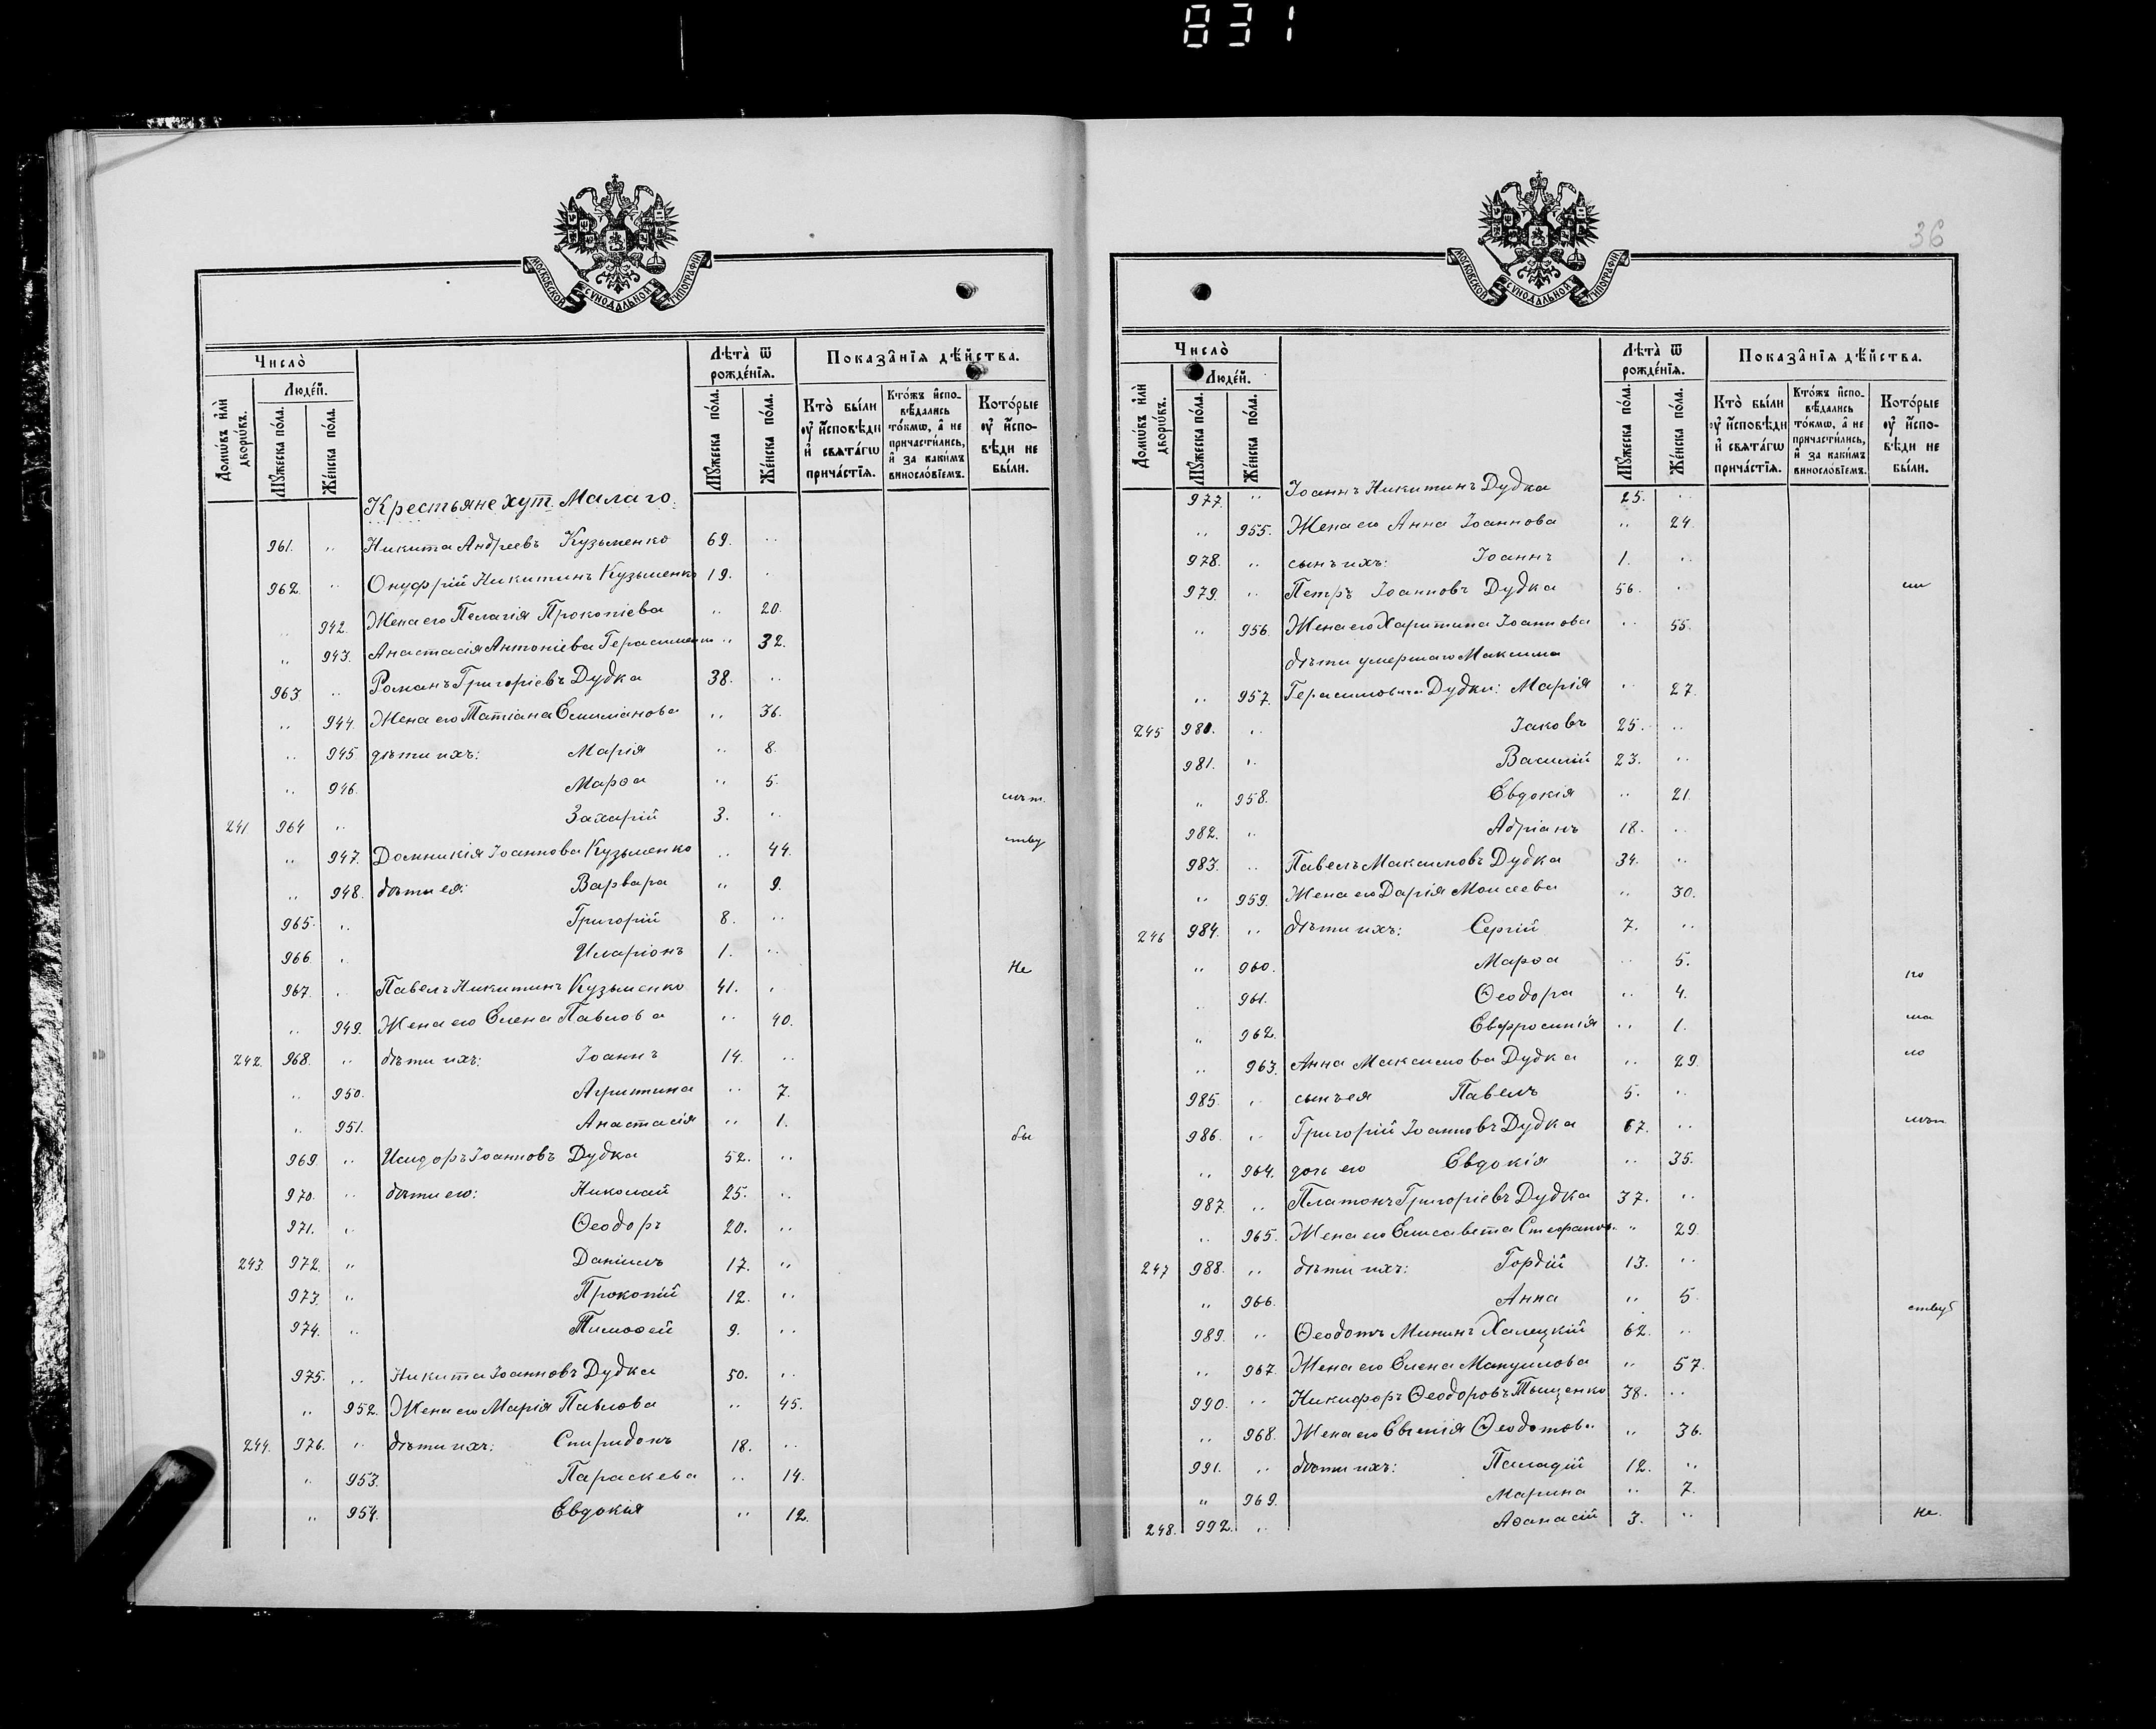 831
МОСКОВСКОЙ СѴНОДАЛЬНОЙ ТИПОГРАФІИ
Число̀
Людей.
Домѡвъ и҆лѝ дворѡвъ.
Мꙋжеска по́ла.
Же́нска по́ла.
Лѣта̀ ѿ рожде́нїѧ.
Мꙋжеска по́ла.
Же́нска по́ла.
Показа̑нїѧ дѣ́йства.
Кто̀ бы́ли ᲂу҆ и҆сповѣди и҆ свѧта́гѡ прича́стїѧ.
Кто́жъ и҆сповѣ́дались то́кмѡ, а҆ не причасти́лись, и҆ за каки́мъ винносло́вїемъ.
Кото́рые ᲂу҆ и҆сповѣди не бы́ли.
Крестьяне хут. Малаго.
961. " Никита Андреевъ Кузьменко 69. "
962. " Онуфрій Никитинъ Кузьменко 19. "
" 942. Жена его Пелагія Прокопіева " 20.
" 943. Анастасія Антоніева Герасименко " 32.
963 " Романъ Григоріевъ Дудка 38. "
" 944. Жена его Татіана Емиліанова " 36.
" 945 дѣти ихъ: Марія " 8.
" 946. Марѳа " 5.
241 964 " Захарій 3. "
" 947. Домникія Іоаннова Кузьменко " 44.
" 948. дѣти ея: Варвара " 9.
965. " Григорій 8. "
966. " Иларіонъ 1. "
Не
967. " Павелъ Никитинъ Кузьменко 41. "
" 949. Жена его Елена Павлова " 40.
242. 968. " дѣти ихъ: Іоаннъ 14. "
" 950. Агриппина " 7.
" 951. Анастасія " 1.
бы
969 " Исидоръ Іоанновъ Дудка 52. "
970. " дѣти его: Николай 25. "
971. " Ѳеодоръ 20. "
243. 972. " Даніилъ 17. "
973. " Прокопій 12. "
974. " Тимоѳей 9. "
975. " Никита Іоанновъ Дудка 50. "
" 952. Жена его Марія Павлова " 45.
244. 976. " дѣти ихъ: Спиридонъ 18. "
" 953. Параскева " 14.
" 954. Евдокія " 12.
36
МОСКОВСКОЙ СѴНОДАЛЬНОЙ ТИПОГРАФІИ
Число̀
Людей.
Домѡвъ и҆лѝ дворѡвъ.
Мꙋжеска по́ла.
Же́нска по́ла.
Лѣта̀ ѿ рожде́нїѧ.
Мꙋжеска по́ла.
Же́нска по́ла.
Показа̑нїѧ дѣ́йства.
Кто̀ бы́ли ᲂу҆ и҆сповѣди и҆ свѧта́гѡ прича́стїѧ.
Кто́жъ и҆сповѣ́дались то́кмѡ, а҆ не причасти́лись, и҆ за каки́мъ винносло́вїемъ.
Кото́рые ᲂу҆ и҆сповѣди не бы́ли.
977. " Іоаннъ Никитинъ Дудка 25. "
" 955. Жена его Анна Іоаннова " 24.
978. " сынъ ихъ: Іоаннъ 1. "
979. " Петръ Іоанновъ Дудка 56. "
" 956. Жена его Харитина Іоаннова " 55.
дѣти умершаго Максима
" 957. Герасимовича Дудки: Марія " 27.
245 980. " Іаковъ 25. "
981. " Василій 23. "
" 958. Евдокія " 21.
982. " Адріанъ 18. "
983. " Павелъ Максимовъ Дудка 34. "
" 959. Жена его Дарія Моисеева " 30.
246 984. " дѣти ихъ: Сергій 7. "
" 960. Марѳа " 5.
" 961. Ѳеодора " 4.
" 962. Евфросинія " 1.
" 963. Анна Максимова Дудка " 29.
985. " сынъ ея Павелъ 5. "
986. " Григорій Іоанновъ Дудка 67. "
" 964. дочь его Евдокія " 35.
987 " Платонъ Григоріевъ Дудка 37. "
" 965. Жена его Елисавета Стефанов. " 29.
247 988. " дѣти ихъ: Гордій 13. "
" 966. Анна " 5.
989. " Ѳеодотъ Мининъ Халецкій 62. "
" 967. Жена его Елена Мануилова " 57.
990. " Никифоръ Ѳеодоровъ Тыщенко 38. "
" 968. Жена его Евгенія Ѳеодотов. " 36.
991. " дѣти ихъ: Палладій 12. "
" 969. Марина " 7.
248. 992. " Аѳанасій 3. "
Не.